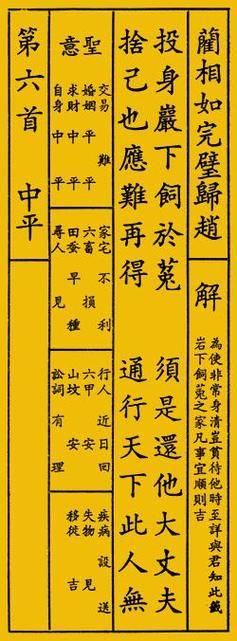 藺相如完璧歸趙
解
為使非常身清豈賞待他時至詳與君知此籤
岩下飼菟之家凡事宜順則吉
投身巖下飼於菟 須是還他大丈夫
捨己也應難再得 通行天下此人無
聖意
交易 難
婚姻 平 平
求財 中 平
自身 中 平
家宅 不利
六畜 損
田蚕 早種
尋人 見
行人 近日回
六甲 安
山坟 安
訟詞 有理
疾病 設送
失物 見
移徙 吉
第六首 中平